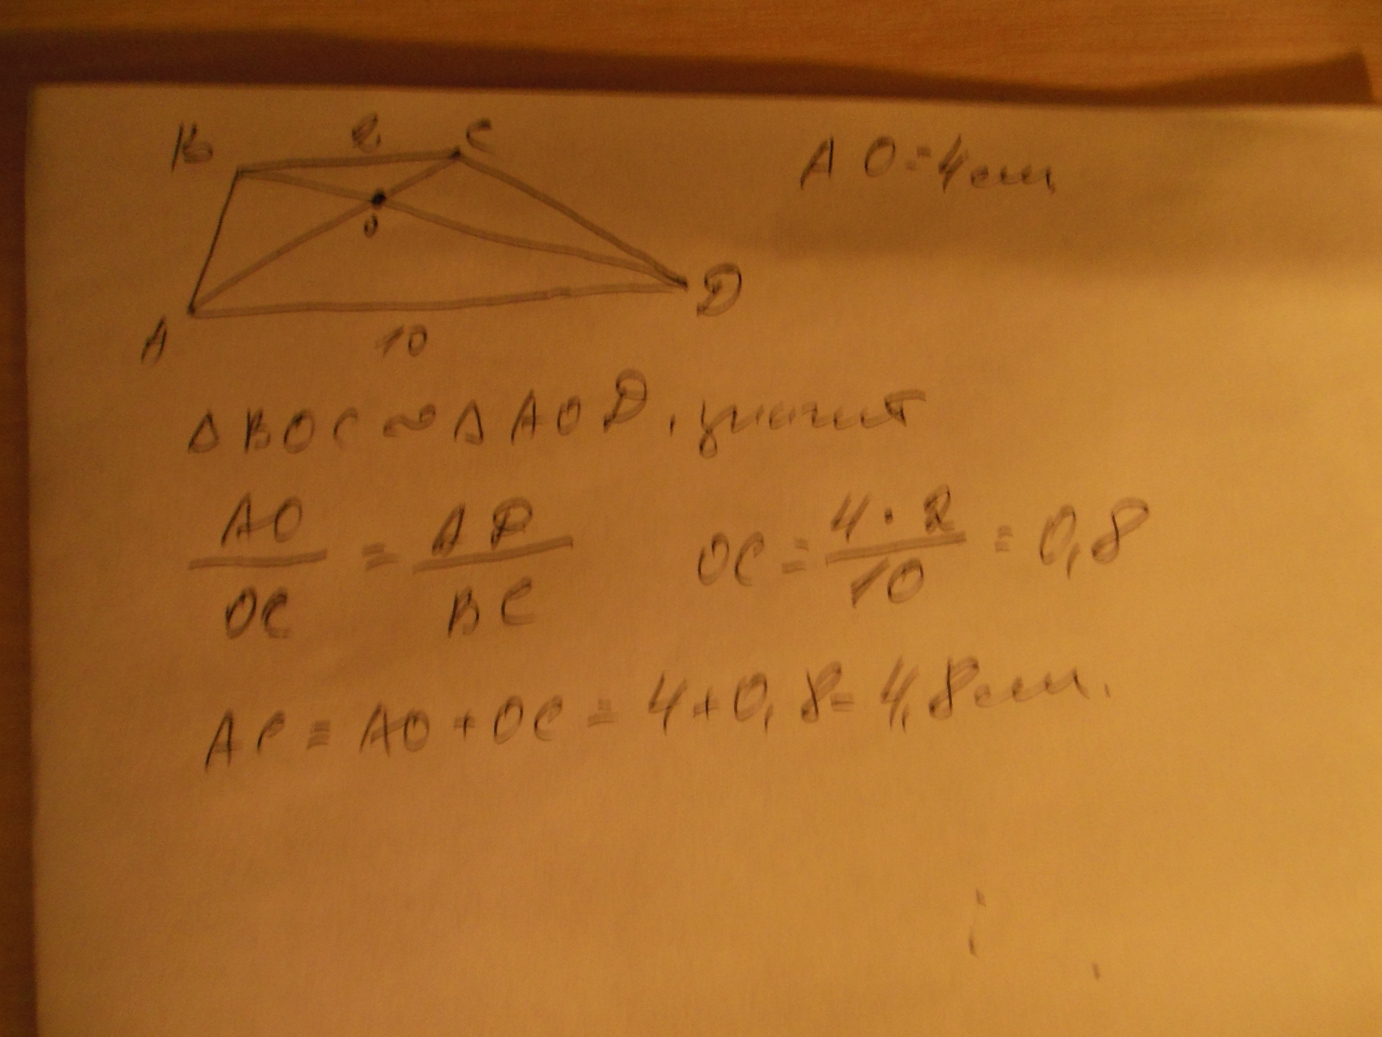 B 2 C
AO = 4 см
O
A 10 D
Δ BOC ∾ Δ AOD, значит
AO/OC = AD/BC OC = 4·2/10 = 0,8
AC = AO + OC = 4 + 0,8 = 4,8 см.